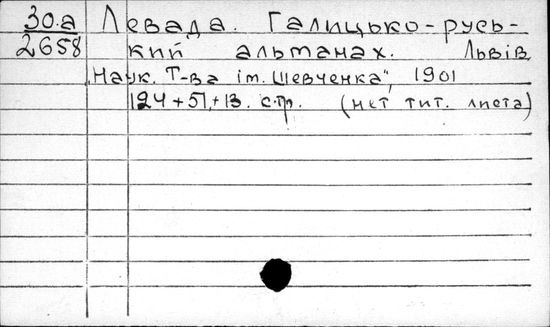 30.а Левада. Галицько-русь-
2658 кий альманах. Львів
„Наук. Т-ва ім. Шевченка", 1901
124+51,+13. стр. (нет тит. листа)